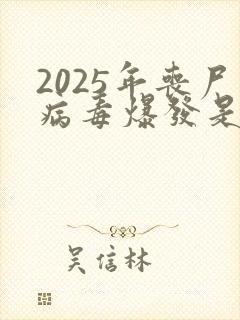 2025年喪尸
病毒爆發是
吴信林